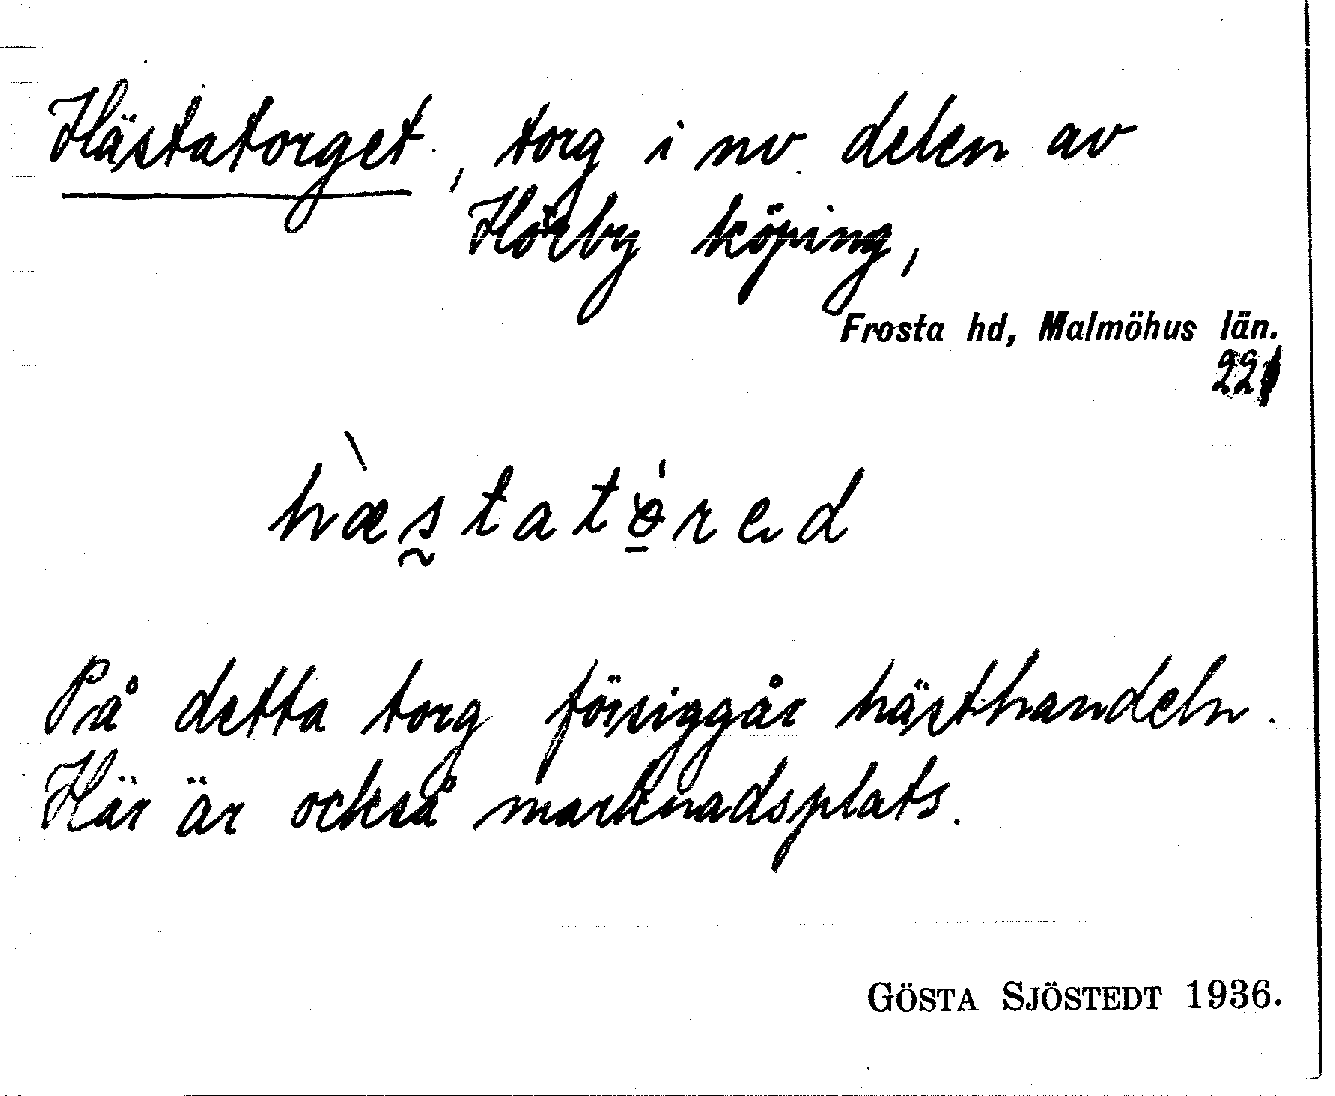 Hästatorget, torg i nv. delen av
Hörby köping,
Frosta hd, Malmöhus län.
221
På detta torg försiggår hästhandeln.
Här är också marknadsplats.
GÖSTA SJÖSTEDT 1936.